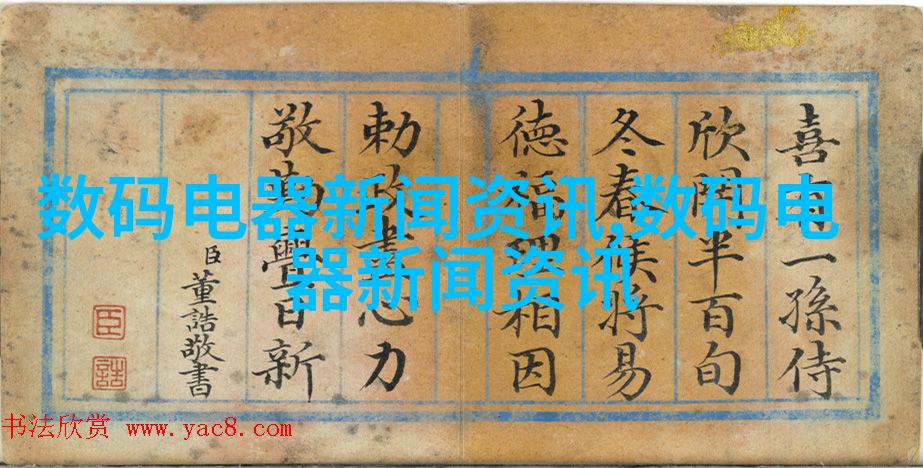 喜有一孫侍
欣開半百旬
冬春候將易
德福理相因
勅政書心力
敬勤學日新
臣董誥敬書
臣
誥
数码电器新闻资讯,数码电
器新闻资讯
书法欣赏 www.yac8.com